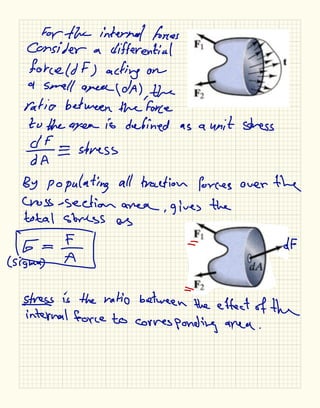 For the internal forces
Consider a differential
force (dF) acting on
a small area (dA), the
ratio between the force
to the area is defined as a unit stress
dF/dA ≡ stress
By populating all traction forces over the
cross-section area, gives the
total stress as
σ = F/A
(sigma)
stress is the ratio between the effect of the
internal force to corresponding area.
F₁
F₂
t
F₁
F₂
dF
dA